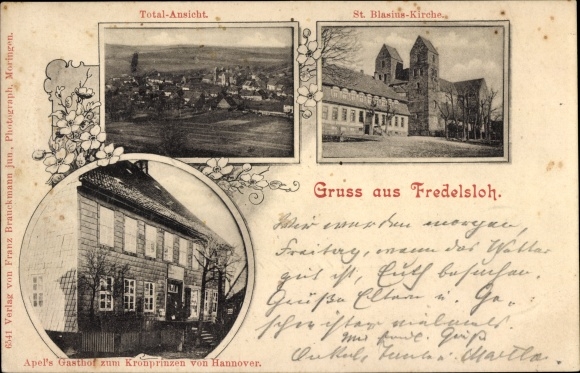 Total-Ansicht.
St. Blasius-Kirche.
6541 Verlag von Franz Brauckmann jun., Photograph, Moringen.
Gruss aus Fredelsloh.
Wir wurden morgen,
Freitag, wenn das Wetter
gut ist, Euch besuchen.
Grüße Eltern u. Ge-
schwister vielmals
Mit Gruß
Onkel, Tante u. Martha.
Apel's Gasthof zum Kronprinzen von Hannover.